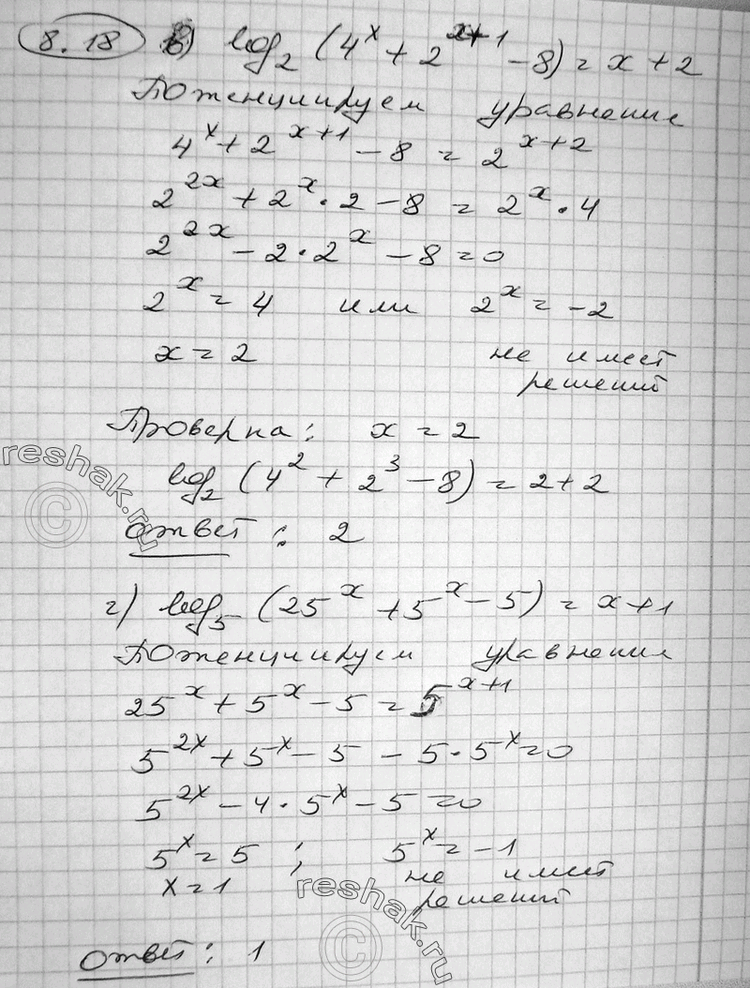 8.18 в) log₂ (4ˣ + 2ˣ⁺¹ - 8) = x + 2
Потенциируем уравнение
4ˣ + 2ˣ⁺¹ - 8 = 2ˣ⁺²
2²ˣ + 2ˣ · 2 - 8 = 2ˣ · 4
2²ˣ - 2 · 2ˣ - 8 = 0
2ˣ = 4 или 2ˣ = -2
x = 2 не имеет
решений
Проверка: x = 2
log₂ (4² + 2³ - 8) = 2 + 2
Ответ: 2
г) log₅ (25ˣ + 5ˣ - 5) = x + 1
Потенциируем уравнение
25ˣ + 5ˣ - 5 = 5ˣ⁺¹
5²ˣ + 5ˣ - 5 - 5 · 5ˣ = 0
5²ˣ - 4 · 5ˣ - 5 = 0
5ˣ = 5 ; 5ˣ = -1
x = 1 не имеет
решений
Ответ: 1
reshak.ru
©
reshak.ru
©